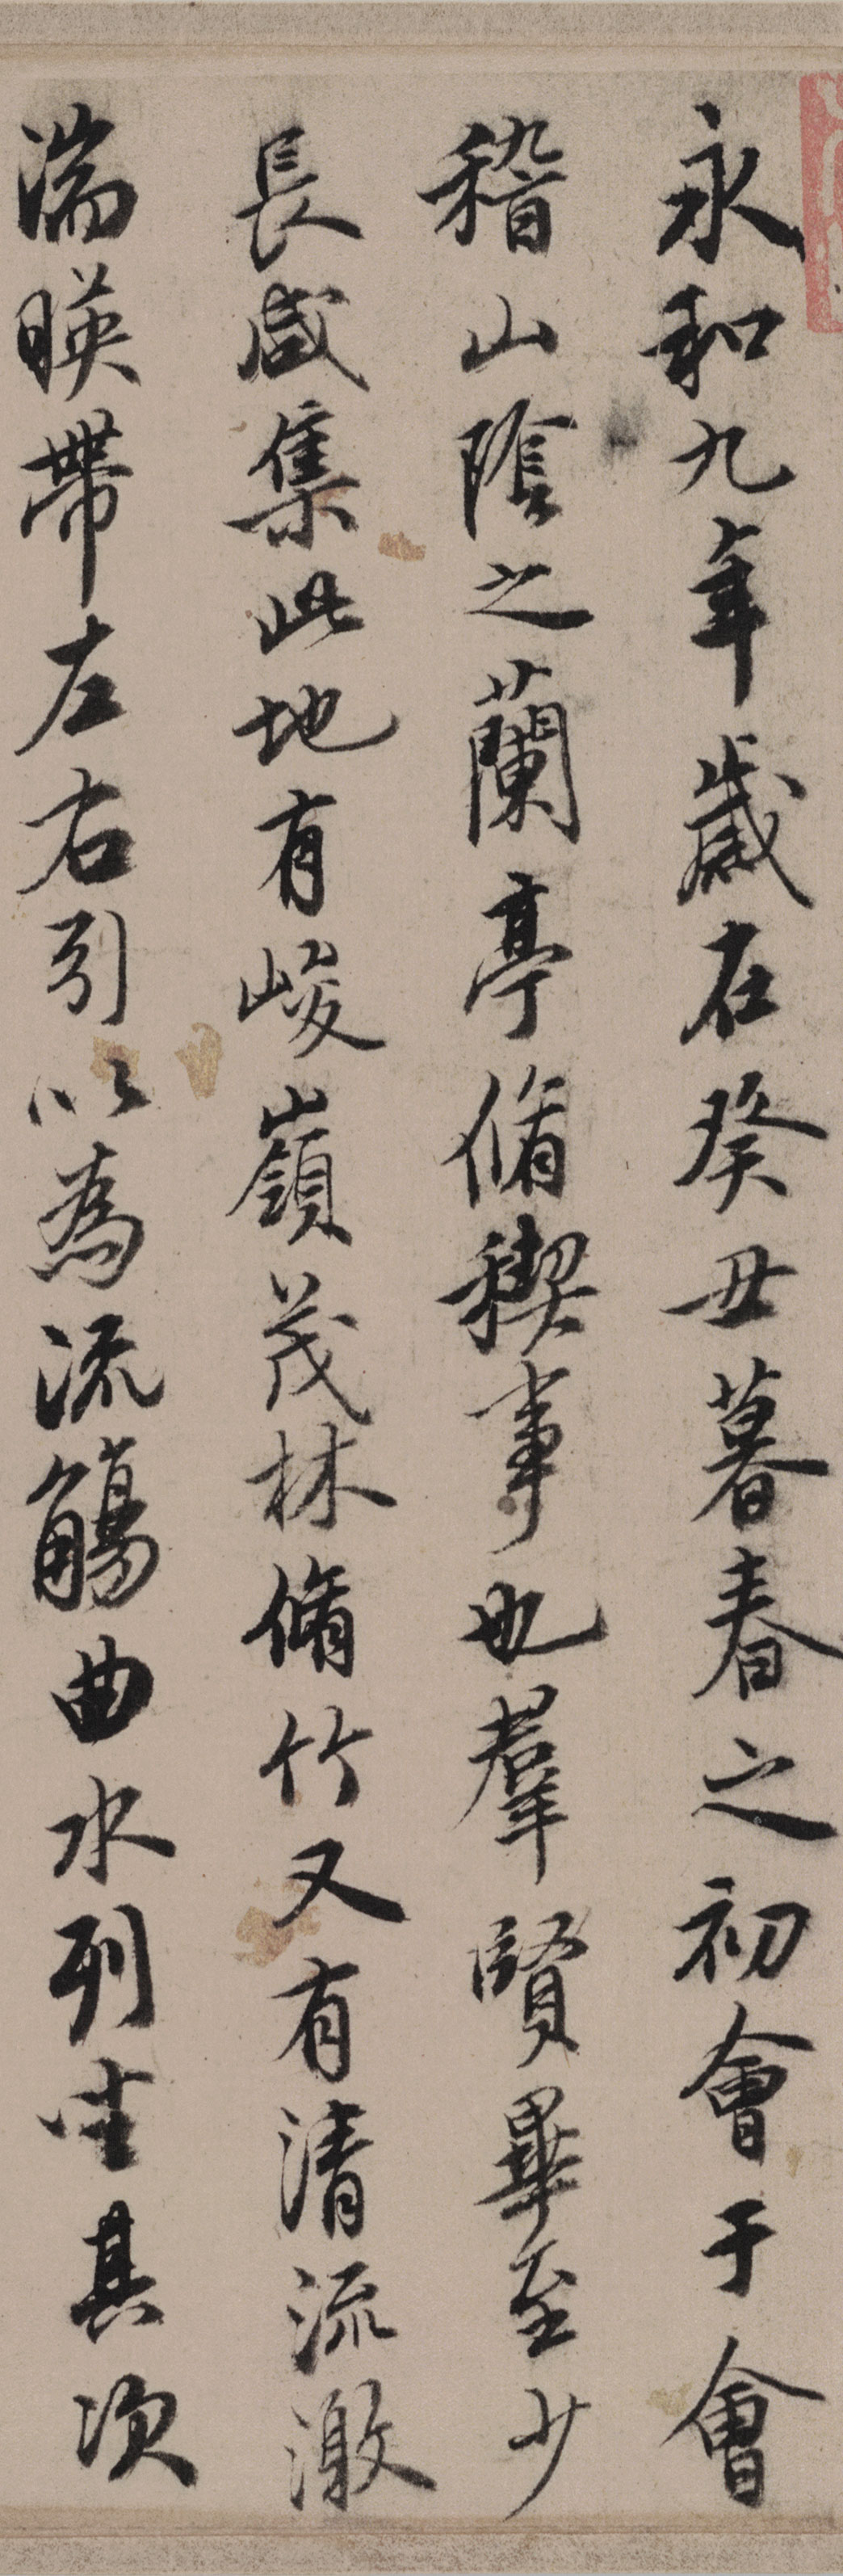 永和九年歲在癸丑暮春之初會于會
稽山陰之蘭亭脩稧事也羣賢畢至少
長咸集此地有峻嶺茂林脩竹又有清流激
湍暎帶左右引以為流觴曲水列坐其次